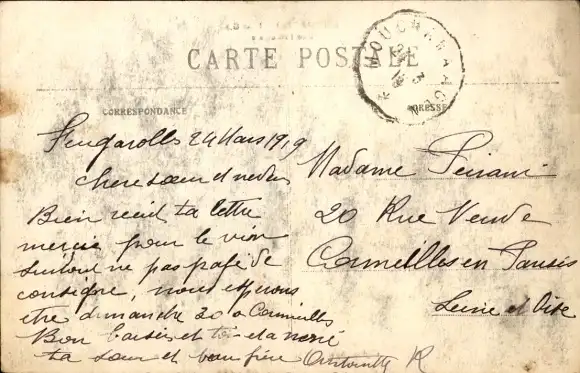 CARTE POSTALE
CORRESPONDANCE
ADRESSE
Feugarolles 24 Mars 1919
chere sœur et neveu
Bien recu ta lettre
mercie pour le vin
surtout ne pas pasé de
consigne, nous esperons
etre dimanche 30 a Cormeilles
Bon baiser et toi et a néné
ta sœur et beau frère Antoinette R
Madame
20 Rue Verde
Cormeilles en Parisis
Seine et Oise